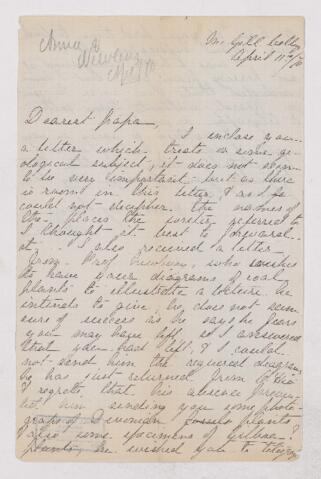 Anna
McGill College
April 11th/70
Dearest Papa,
I enclose you
a letter which treats on some ge-
ological subject, it does not seem
to be very important but as there
is room in this letter & as I
could not decipher the names of
the places the writer referred to
I thought it best to forward
it. I also received a letter
from Prof. who wishes
to have your diagrams of coal
plants to illustrate a lecture he
intends to give, he does not seem
sure of success as he says he fears
you may have left, so I answered
that you had left, & I could
not send him the required diagrams
he has just returned from
& regrets that his absence preven-
ted him sending you some photo-
graphs of Devonian fossils plants
& also some specimens of
plants, he wished you to telegraph